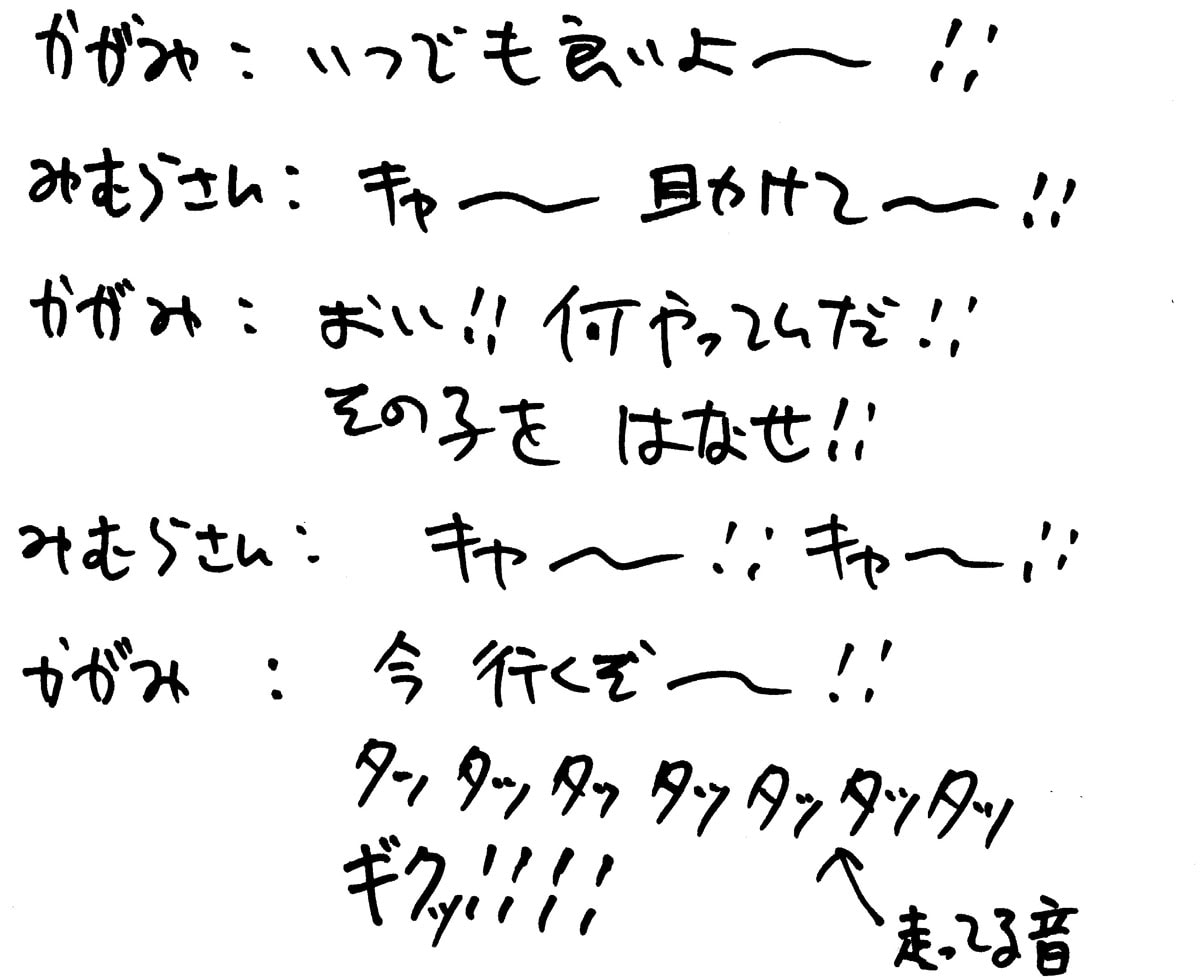 かがみ：いつでも良いよ〜!!
みむらさん：キャ〜 目かけて〜!!
かがみ：おい!! 何やってんだ!!
その子を はなせ!!
みむらさん：キャ〜!! キャ〜!!
かがみ：今 行くぞ〜!!
タッ タッ タッ タッ タッ タッ タッ
ギクッ!!!!
走ってる音